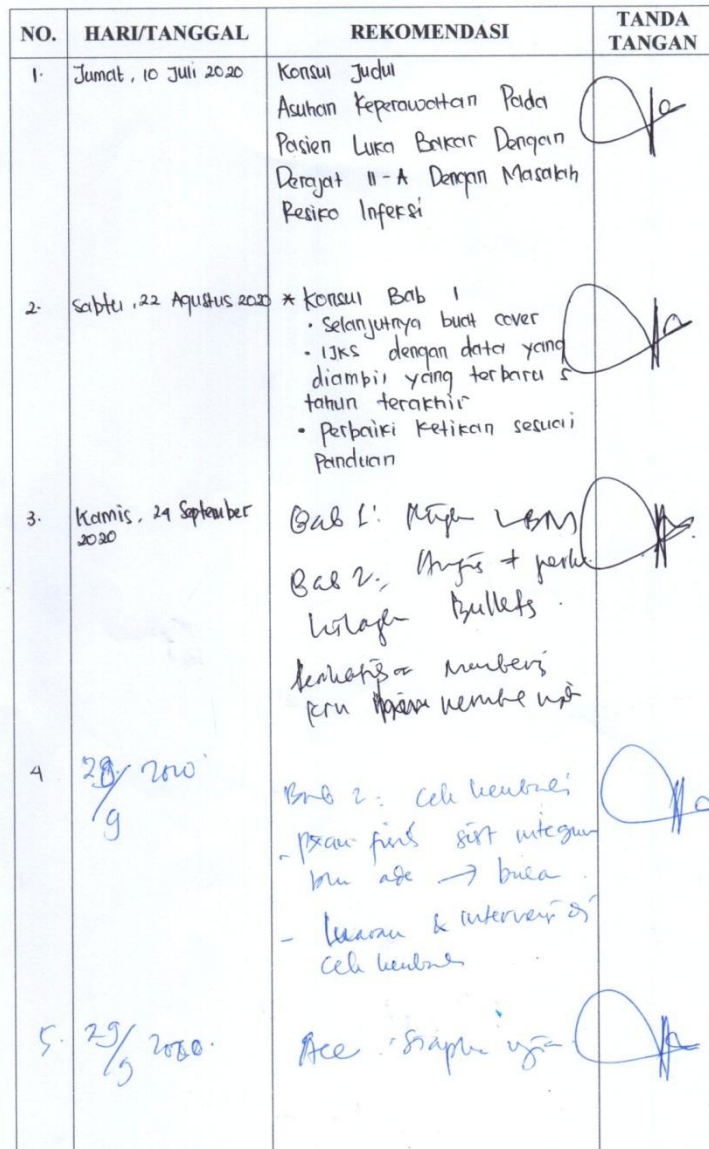 NO. HARI/TANGGAL REKOMENDASI TANDA TANGAN
1. Jumat, 10 Juli 2020 Konsul Judul
Asuhan Keperawatan Pada
Pasien Luka Bakar Dengan
Derajat II-A Dengan Masalah
Resiko Infeksi
2. Sabtu, 22 Agustus 2020 * Konsul Bab 1
• Selanjutnya buat cover
• IJKS dengan data yang
diambil yang terbaru 5
tahun terakhir
• Perbaiki Ketikan sesuai
Panduan
3. Kamis, 24 September
2020
Bab 1: LBM
Bab 2:
Bullets
4 2020
9
Bab 2: cek kembali
- sist integum
ada → baca
- Luaran & intervensi
cek kembali
5. 29/9 2020. Acc